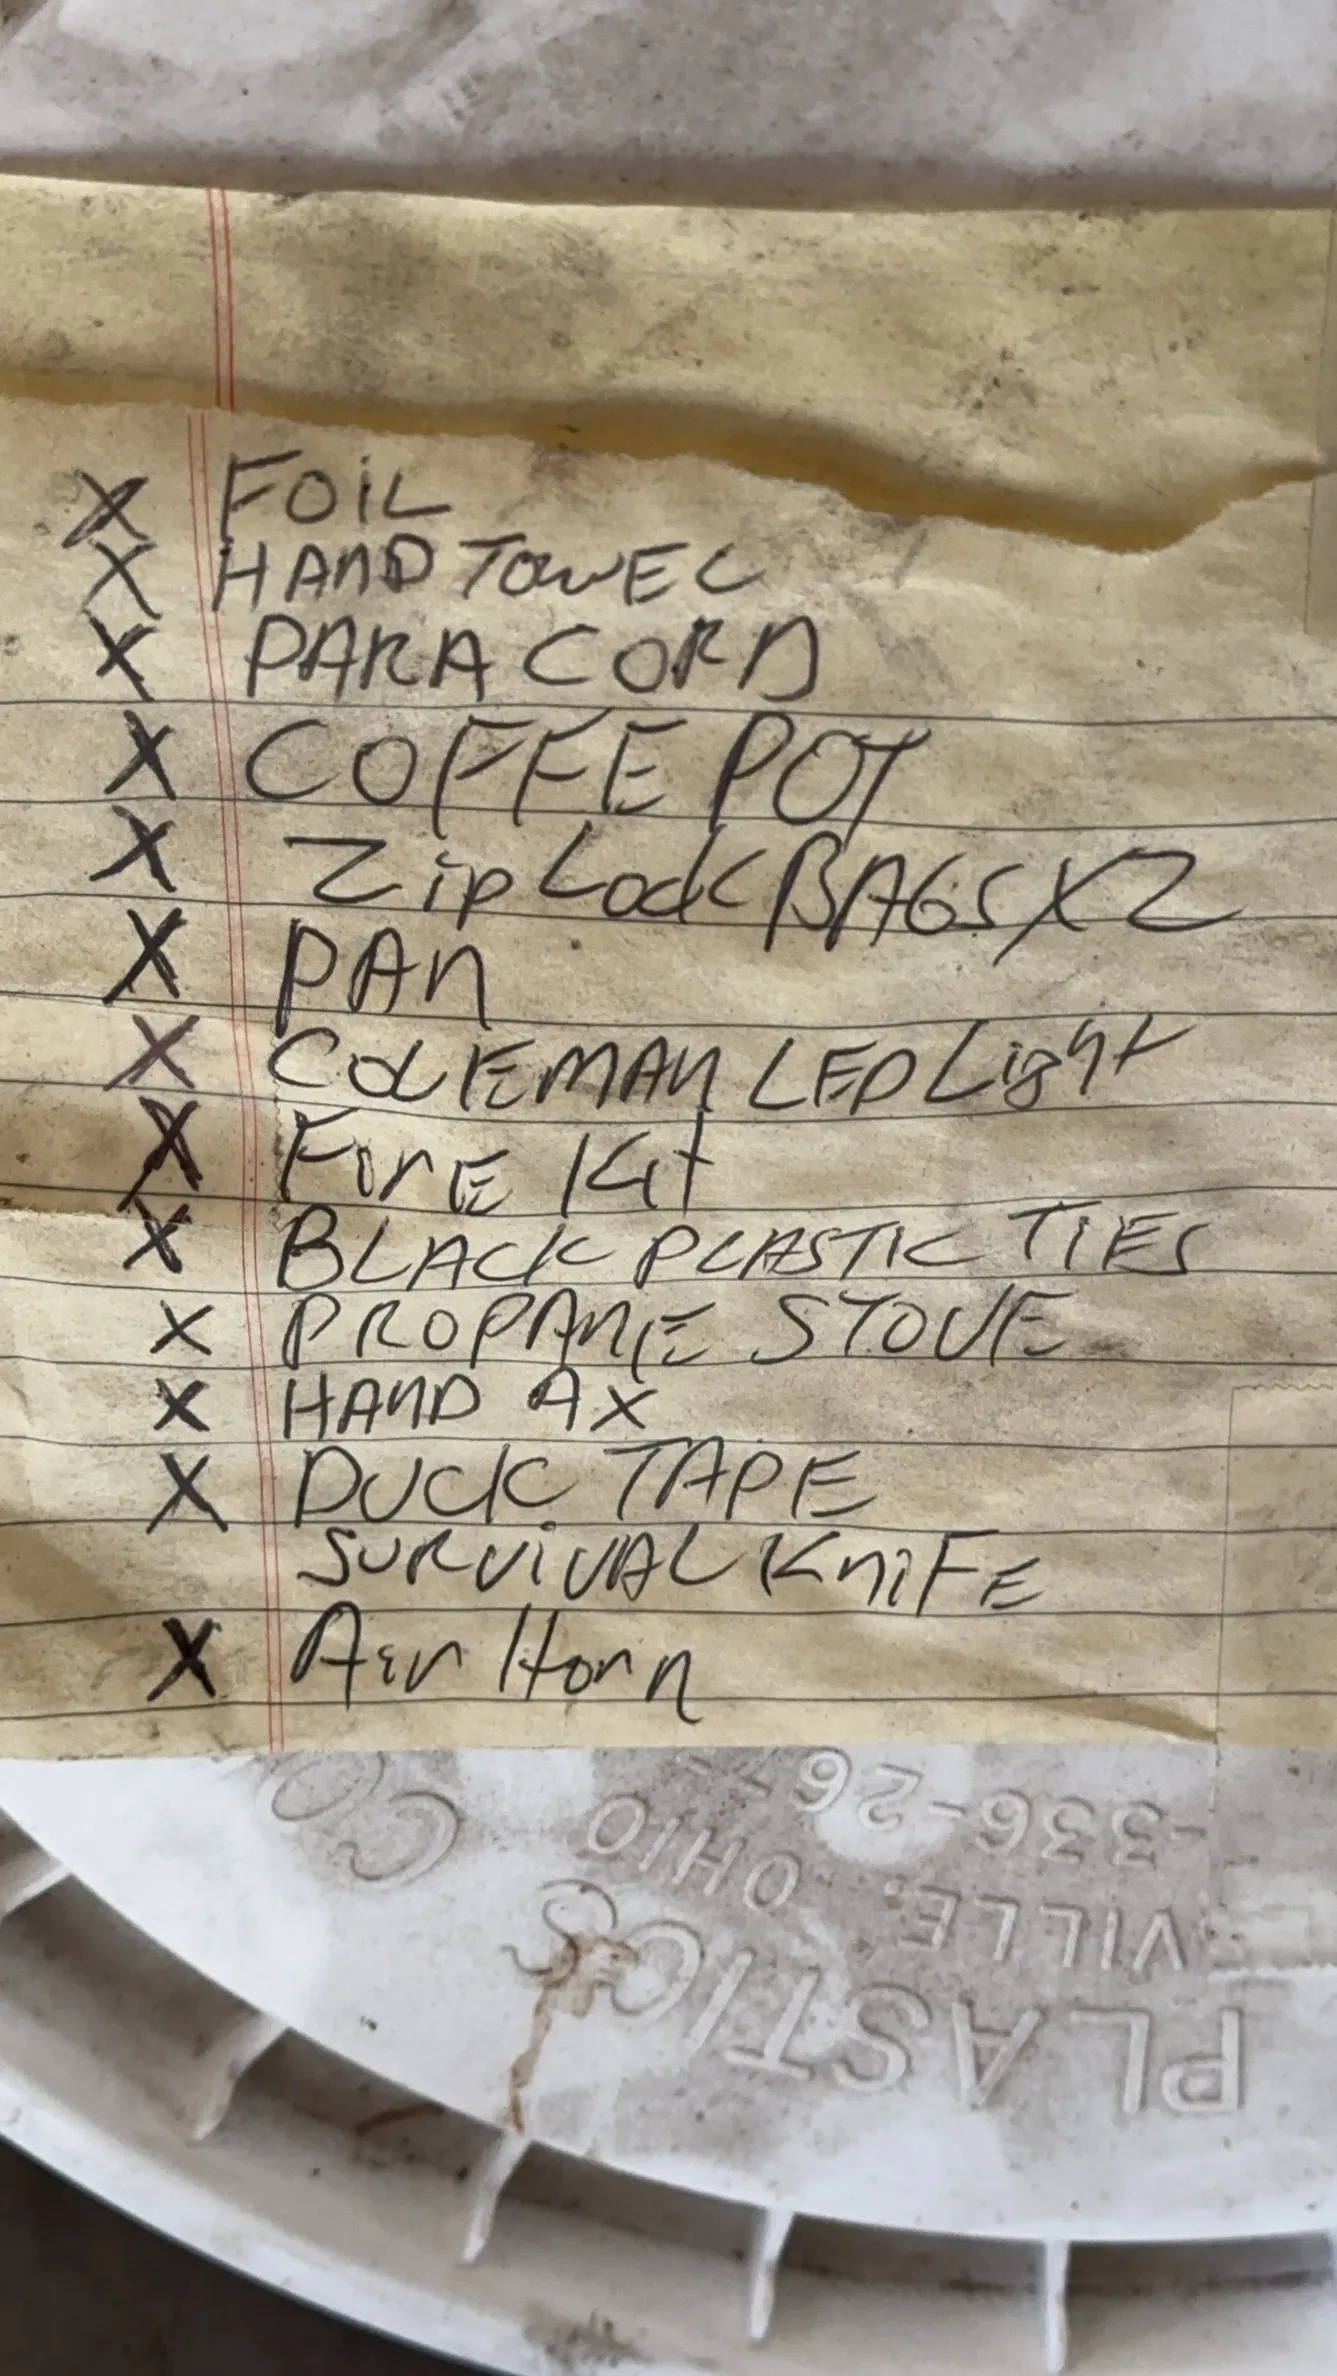 X FOIL
X HAND TOWEL
X PARA CORD
X COFFE POT
X Zip Lock BAGS X2
X PAN
X COLEMAN LED Light
X FirE Kit
X BLACK PLASTIC TIES
X PROPANE STOVE
X HAND AX
X DUCK TAPE
SURViVAL KniFE
X Air Horn
CO
-336-267-
VILLE, OHIO
PLASTICS